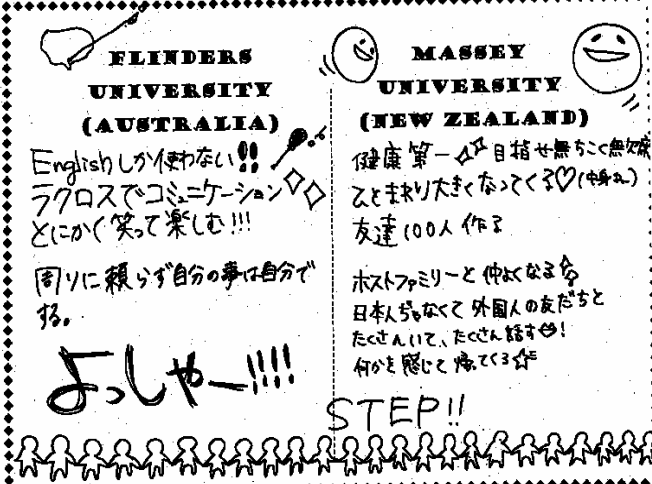 FLINDERS
UNIVERSITY
(AUSTRALIA)
Englishしか使わない!!
ラクロスでコミュニケーション
とにかく笑って楽しむ!!!
周りに頼らず自分の事は自分で
する。
よっしゃー!!!!
MASSEY
UNIVERSITY
(NEW ZEALAND)
健康第一 目指せ無ちこく無欠席
ひとまわり大きくなってくる♡(中身ね)
友達100人作る
ホストファミリーと仲よくなる
日本人ぢゃなくて外国人の友だちと
たくさんいて、たくさん話す!
何かを感じて帰ってくる
STEP!!